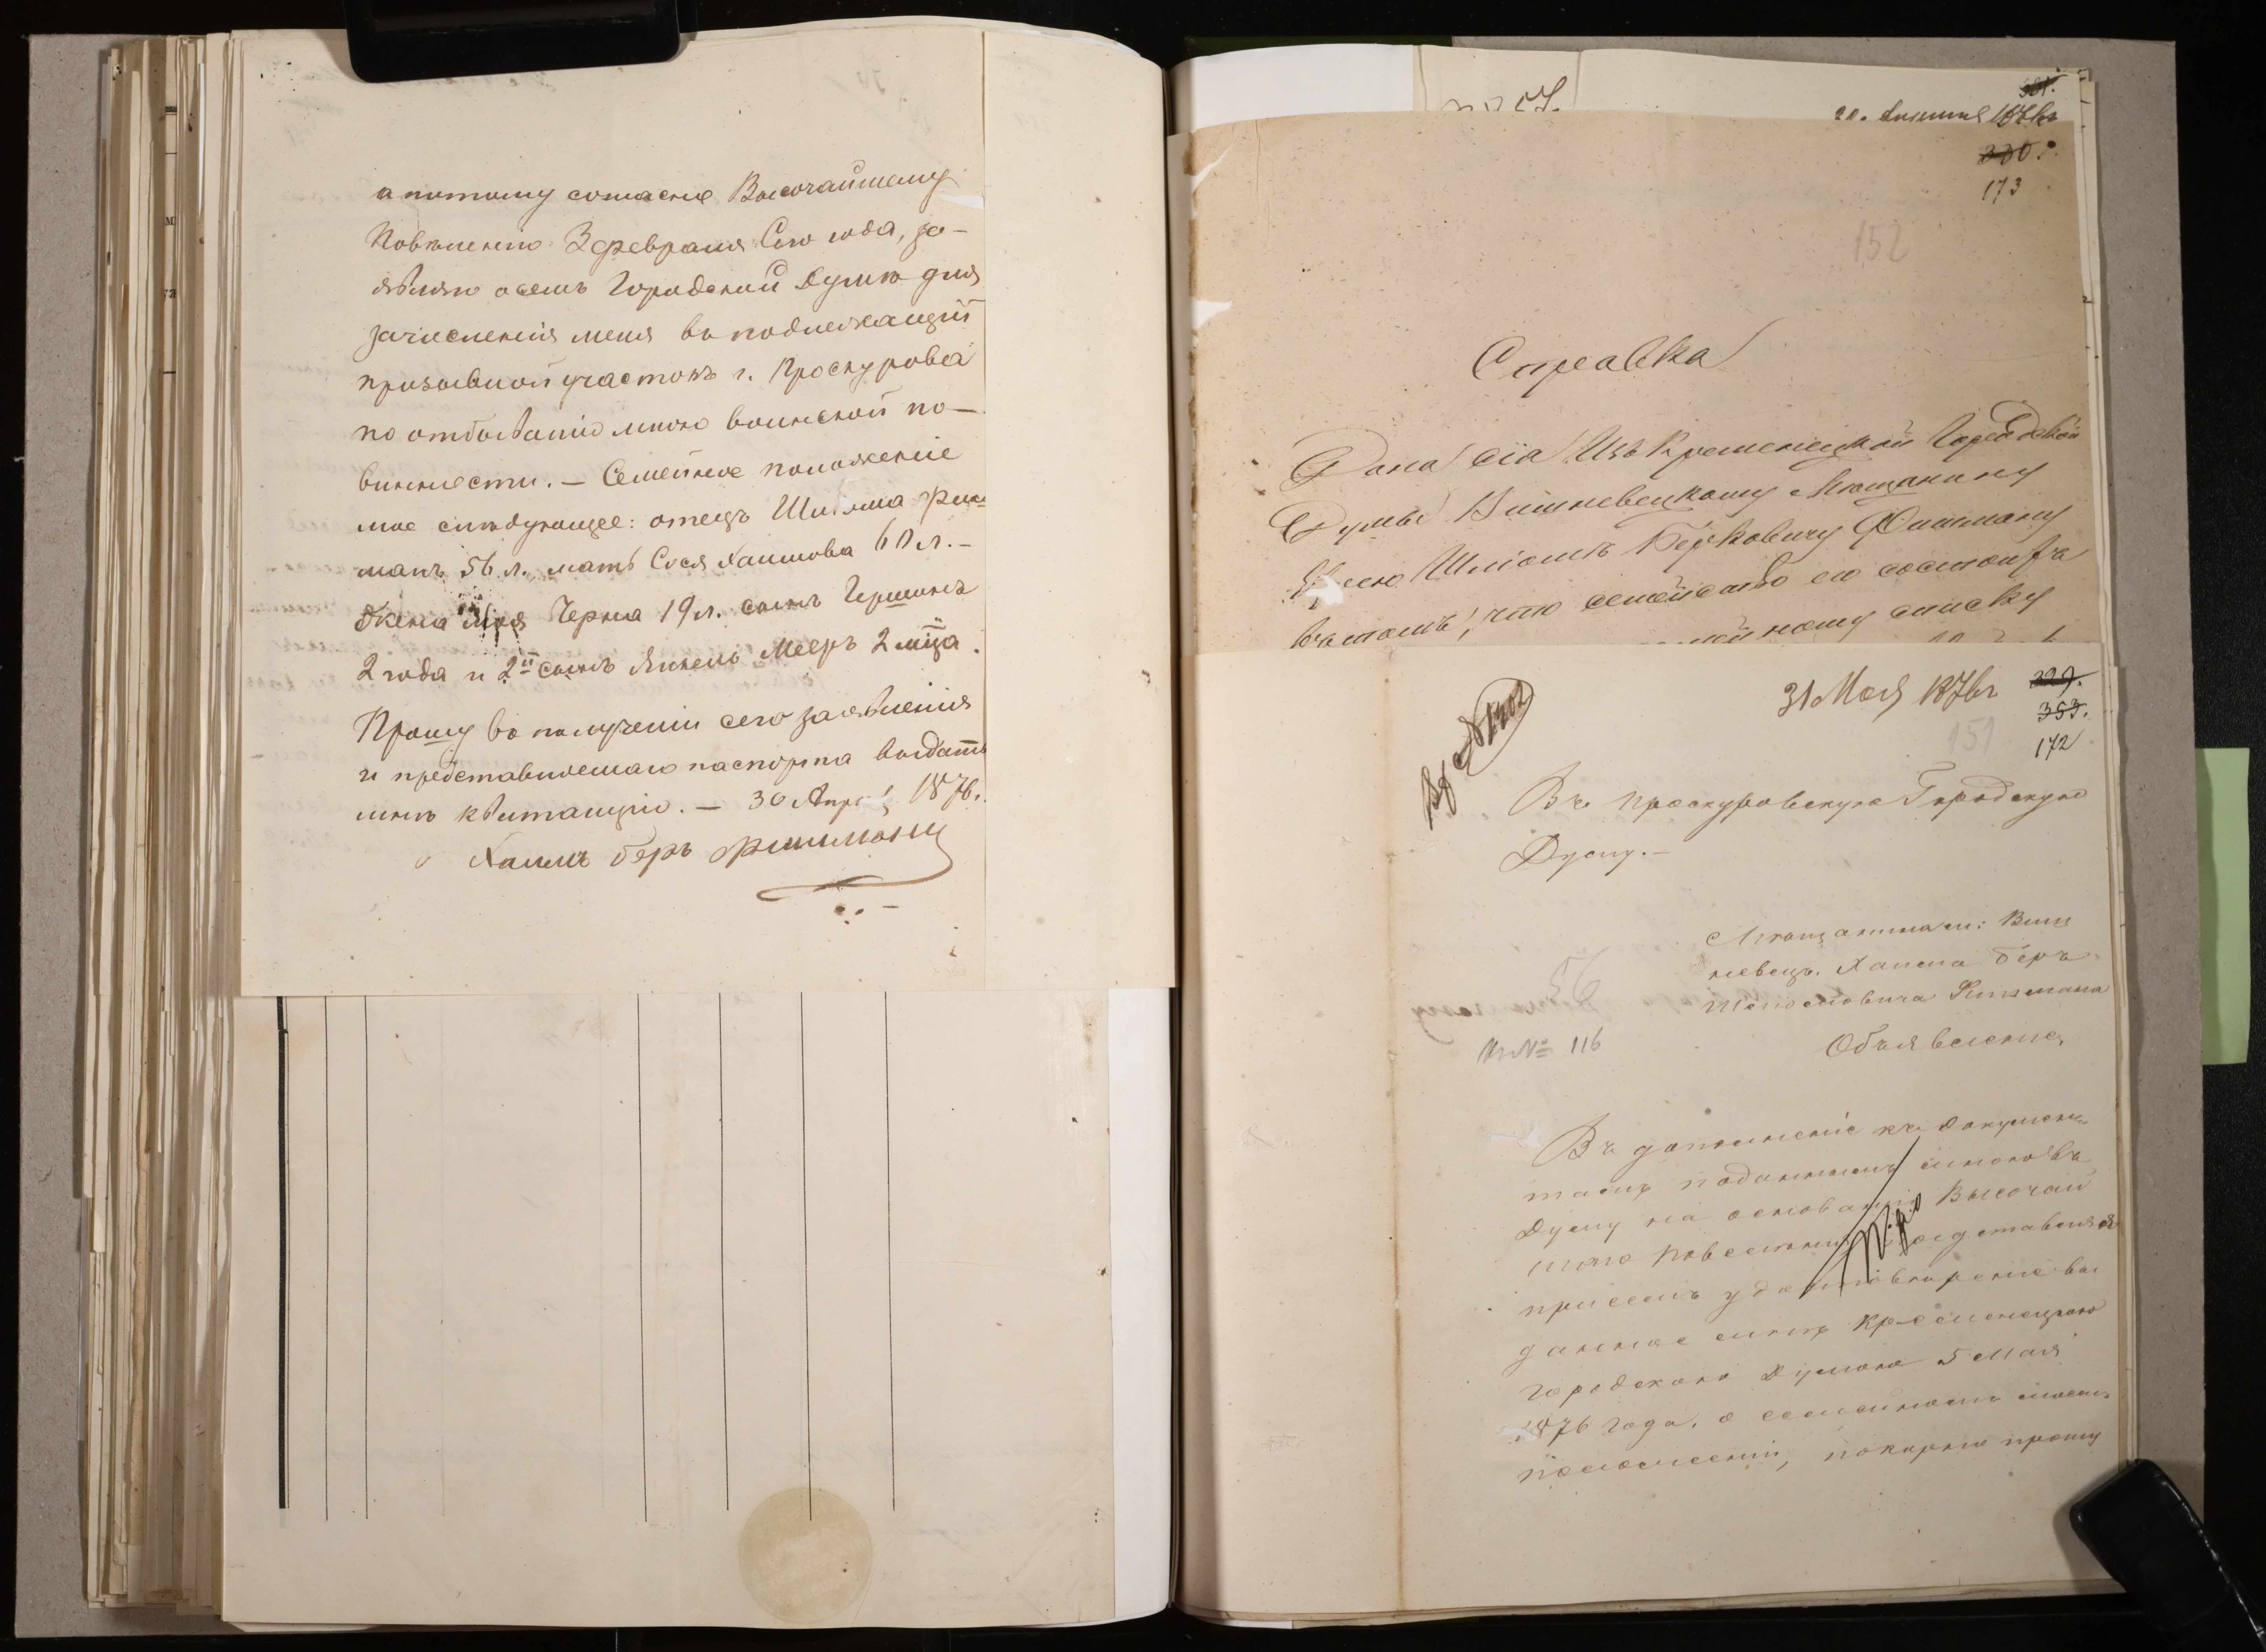 а потому согласно Высочайшему
Повѣленію 3 февраля Сего года, за-
являю о семъ Городской Думѣ для
зачисленія меня въ подлежащій
призывной участокъ г. Проскурова
по отбыванію мною воинской по-
винности. — Семейное положеніе
мое слѣдующее: отецъ Шліома Фиш-
манъ 56 л. мать Сося Хаимова 60 л. —
Жена моя Черна 19 л. сынъ Гершонъ
2 года и 2й сынъ Янкель Мееръ 2 мца.
Прошу въ полученіи сего заявленія
и представляемаго паспорта выдать
мнѣ квитанцію. — 30 Апрѣ 1876.
Хаимъ Беръ Фишманъ
331.
20. 1876 г
330.
173
152
Справка
Дана сія Изъ Кременецкой Городской
Думы Вишневецкому Мѣщанину
Еврею Шліомѣ Берковичу Фишману
въ томъ, что семейство его состоитъ
списку
31 Мая 1876 г
329.
353.
151
172
Въ Проскуровскую Городскую
Думу. —
Мѣщанина м: Виш
невецъ. Хаима Беръ
Шліомовича Фишмана
К № 116
Объявленіе,
Въ дополненіе къ докумен
тамъ поданнымъ мною въ
Думу на основаніи Высочай
шаго Повелѣнія представляя
присемъ удостовѣреніе вы
данное мнѣ Кременецкою
Городскою Думою 5 Мая
1876 года. о семейномъ моемъ
положеніи, покорно прошу